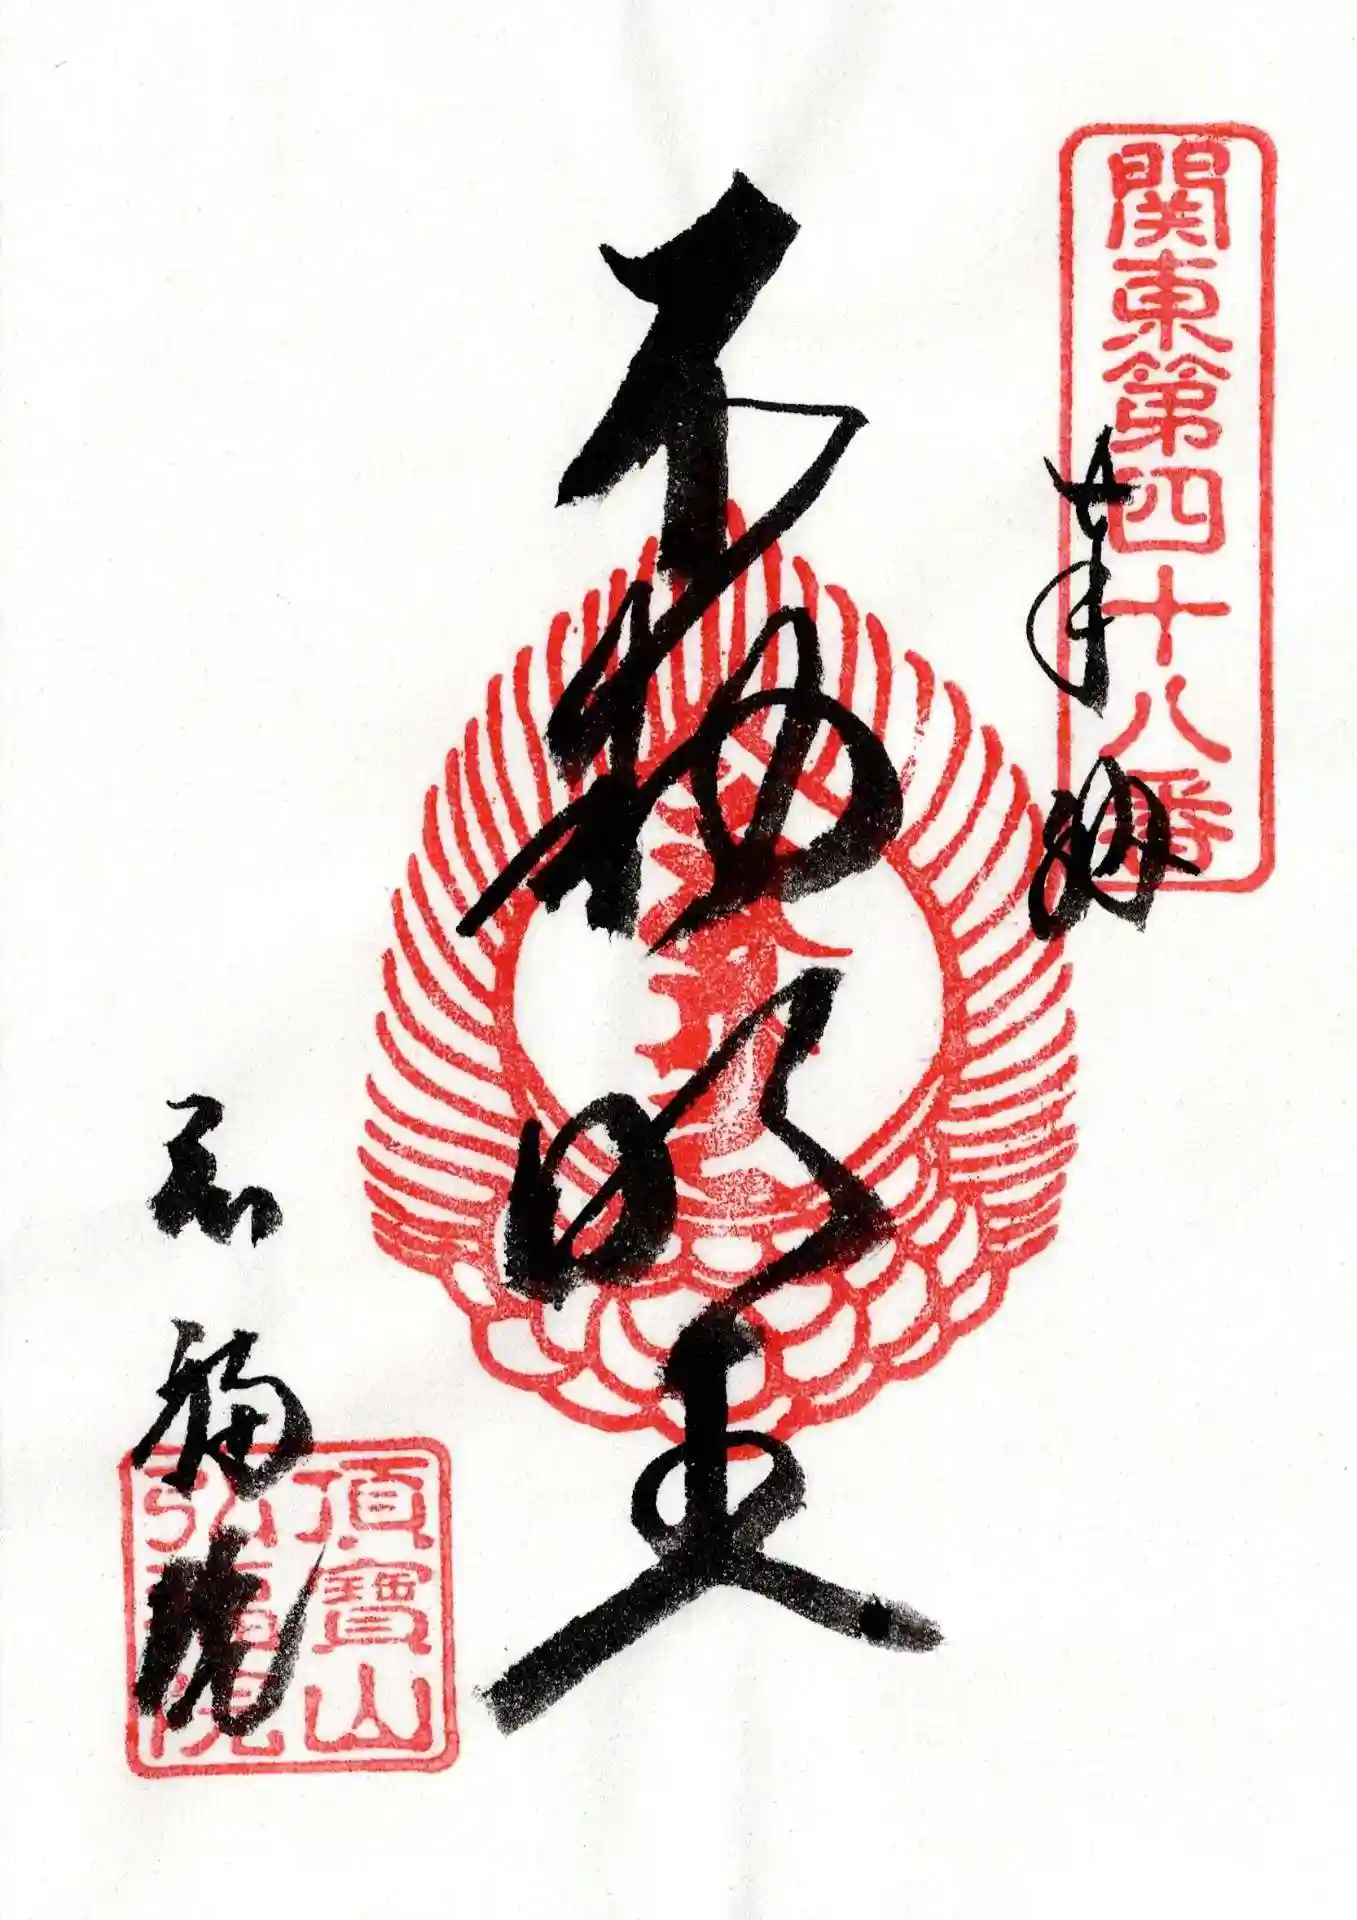 関東第四十八番
奉納
不動明王
弘福院
頂寶山
弘福院